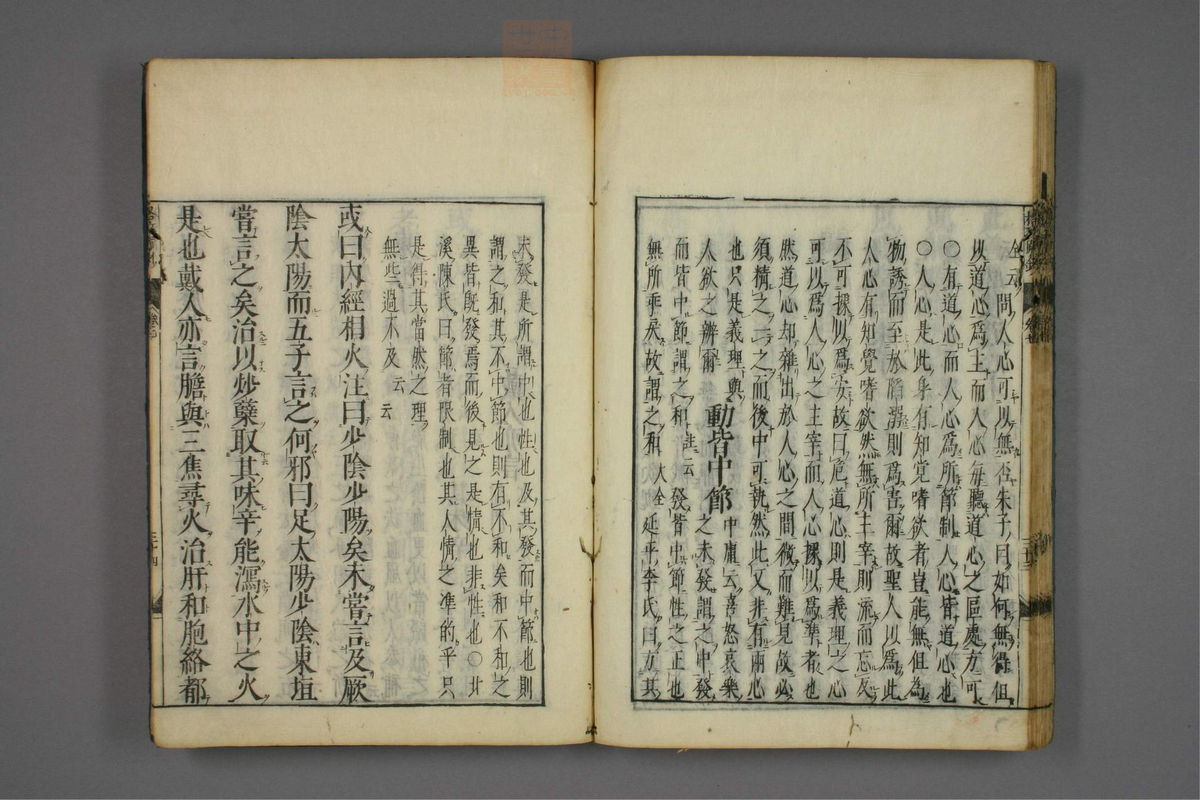 仝云問人心可以無否朱子曰如何無得但
以道心爲主而人心每聽道心之區處方可
〇有道心而人心爲所節制人心皆道心也
〇人心是此身有知覚嗜欲者豈能無但為
物誘而至於陷溺則爲害爾故聖人以爲此
人心有知覺嗜欲然無所主宰則流而忘反
不可據以爲安故曰危道心則是義理之心
可以爲人心之主宰而人心據以爲準者也
然道心却雜出於人心之間微而難見故必
須精之一之而後中可執然此又非有兩心
也只是義理與
人欲之辨爾
動皆中節
中庸云喜怒哀樂
之未發謂之中發
而皆中節謂之和
註云發皆中節性之正也
無所乖戾故謂之和
大全延平李氏曰方其
未發是所謂中也性也及其發而中節也則
謂之和其不中節也則有不和矣和不和之
異皆既發焉而後見之是情也非性也〇北
溪陳氏曰節者限制也其人情之準的乎只
是得其當然之理
無些過不及云云
或曰內經相火注曰少陰少陽矣未嘗言及厥
陰太陽而五子言之何邪曰足太陽少陰東垣
嘗言之矣治以炒蘗取其味辛能瀉水中之火
是也戴人亦言膽與三焦尋火治肝和胞絡都